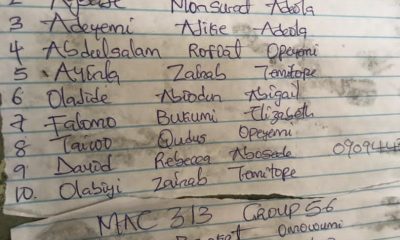 Monsurat Adeola
3 Adeyemi Ajike Adeola
4 Abdulsalam Rofiat Opeyemi
5 Ayinla Zainab Temitope
6 Olajide Abiodun Abigail
7 Falomo Bukumi Elizabeth
8 Taiwo Qudus Opeyemi
9 David Rebecca Abosede 090944
10. Olabiyi Zainab Temitope
MAC 313 Group 56
Omowumi